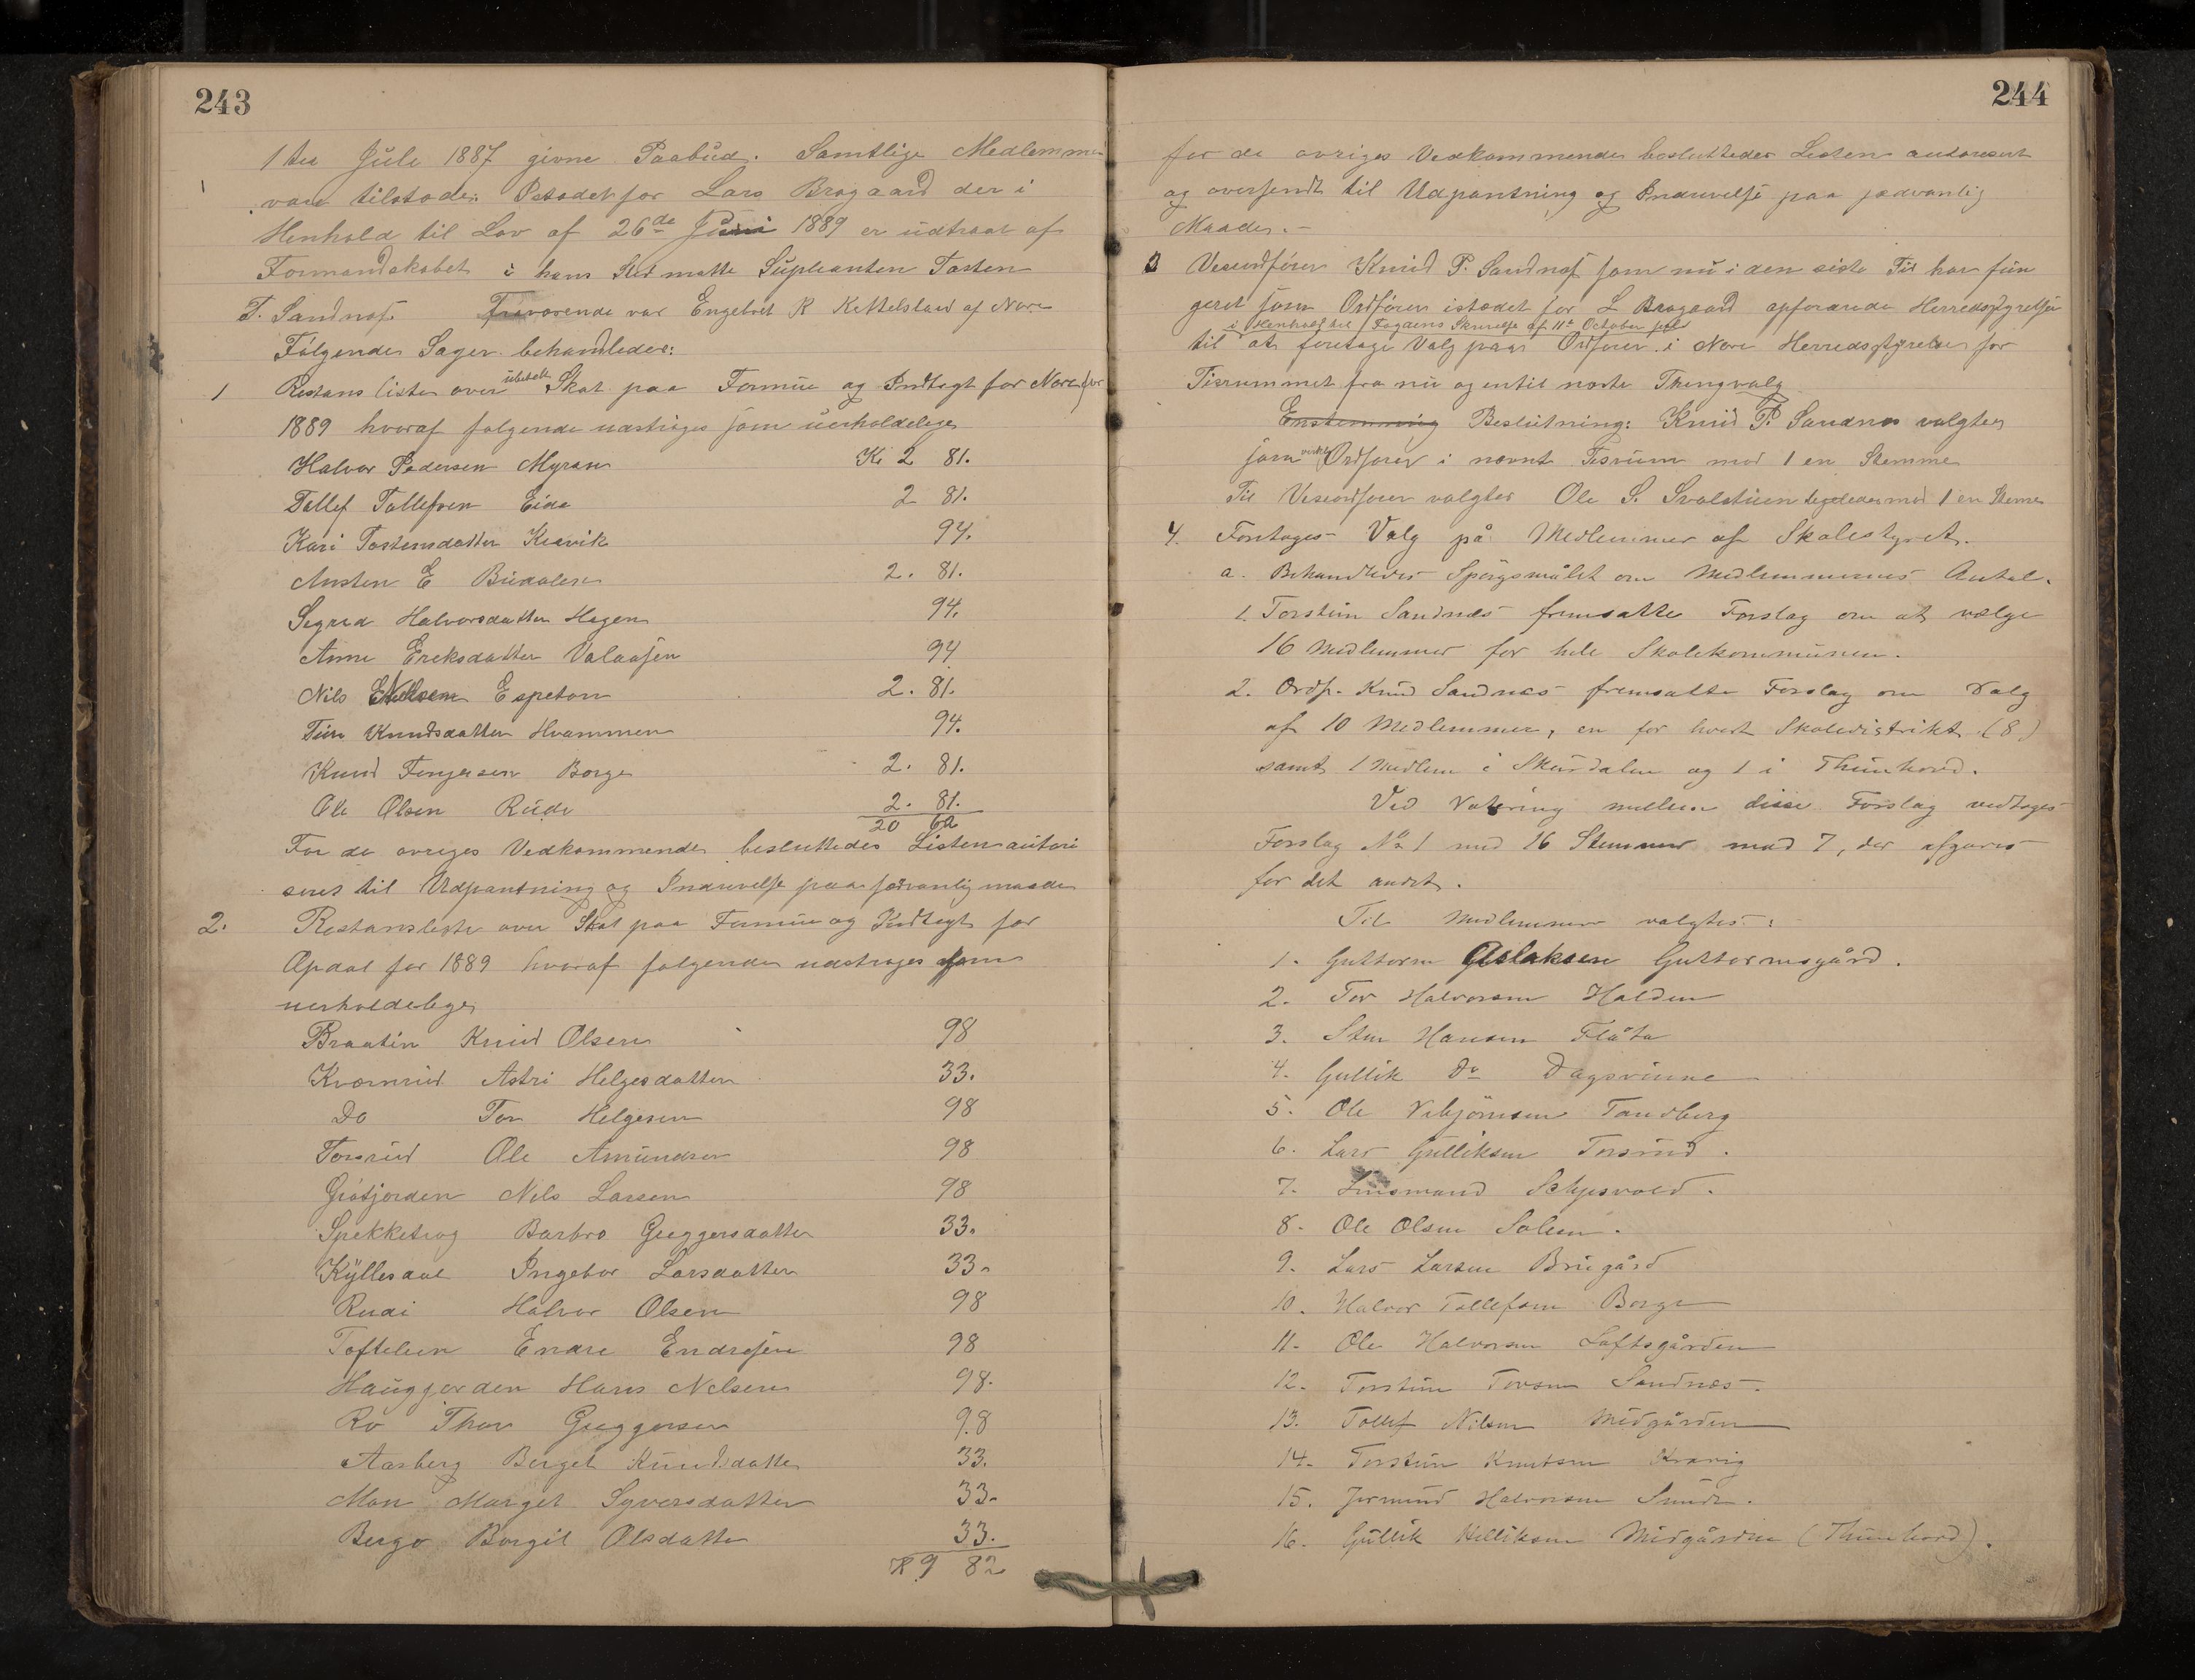 243
1ste Juli 1887 givne Paabud. Samtlige Medlemmer
vare tilstede. Istedetfor Lars Brogaard der i
Henhold til Lov af 26de Juni 1889 er udtraat af
Formandskabet i hans Sted møtte Supleanten Tosten
T. Sandnæs. Fraværende var Engebret K Kittelsland af Nore
Følgende Sager behandledes:
1 Restansliste over ubetalt Skat paa Formue og Indtægt for Nore for
1889 hvoraf følgende udstryges som uerholdelige
Halvor Pedersen Myran Kr 2 81.
Tollef Tollefsen Eide 2 81.
Kari Tostensdatter Kravik 94.
Austen E 2. 81.
Sigrid Halvorsdatter Hagen 94.
Anne Eriksdatter Valaasen 94
Nils Espeton 2. 81.
Knudsdatter Hvammen 94.
Knud Torgersen Borge 2. 81.
Ole Olsen Rude 2. 81.
20 62
For de øvriges Vedkommende besluttedes Listen autori
seres til Udpantning og Inddrivelse paa sædvanlig maade
2. Restansliste over Skat paa Formue og Indtægt for
Opdal for 1889 hvoraf følgende udstryges som
uerholdelige
Braatin Knud Olsen 98
Kværnrud Astri Helgesdatter 33.
Do Tor Helgesen 98
Torsrud Ole Amundsen 98
Grøtjorden Nils Larsen 98
Spekketrog Barbro Greggersdatter 33.
Kyllesdal Ingebor Larsdatter 33.
Rudi Halvor Olsen 98
Toftelien Endre Endresen 98
Haugjorden Hans Nelsen 98.
Ro Thor Greggersen 98
Aasberg Berget Knudsdatter 33.
Moen Marget Syversdatter 33.
Bergo Borgil Olsdatter 33.
Kr 9 82
244
for de øvriges Vedkommende besluttedes Listen autoriseret
og oversendt til Udpantning og Inddrivelse paa sædvanlig
Maade.
3 Viceordfører Knud P. Sandnæs som nu i den siste Tid har fun
geret som Ordfører istedet for L Brogaard opfordrede Herredsstyrelsen
i Henhold til Fogdens Skrivelse af 11te October
til at foretage Valg paa Ordfører i Nore Herredsstyrelse for
Tisrummet fra nu og intil næste Thingvalg
Enstemmig Beslutning: Knud P. Sandnes valgtes
som Ordfører i nævnt Tisrum med 1 en Stemme
Til Viseordfører valgtes Ole S. Svalstuen ligeledes med 1 en Steme
4. Foretoges Valg på Medlemmer af Skolestyret.
a. Behandledes Spørgsmålet om Medlemmernes Antal.
1. Torstein Sandnæs fremsatte Forslag om at vælge
16 Medlemmer for hele Skolekommunen.
2. Ordf. Knud Sandnæs fremsatte Forslag om Valg
af 10 Medlemmer, en for hvert Skoledistrikt (8)
samt 1 Medlem i Skurdalen og 1 i Thunhovd.
Ved Votering mellem disse Forslag vedtoges
Forslag No 1 med 16 Stemmer mod 7, der afgaves
for det andet.
Til Medlemmer valgtes:
1. Guttorm Aslaksen Guttormsgård.
2. Tov Halvorsen Halden
3. Sten Hansen Flåta
4. Gullik Do Dagsvinne
5. Ole Vebjørnsen Tandberg
6. Lars Gulliksen Torsrud.
7. Lensmand Setjesvold.
8. Ole Olsen Solem.
9. Lars Larsen Brugård
10. Halvor Tollefsen Borge
11. Ole Halvorsen Loftsgården
12. Torstein Torsen Sandnæs.
13. Tollef Nilsen Midgården
14. Torstein Knutsen Kravig
15. Jermund Halvorsen Smedr.
16. Gullik Helliksen Midgården (Thunhovd).